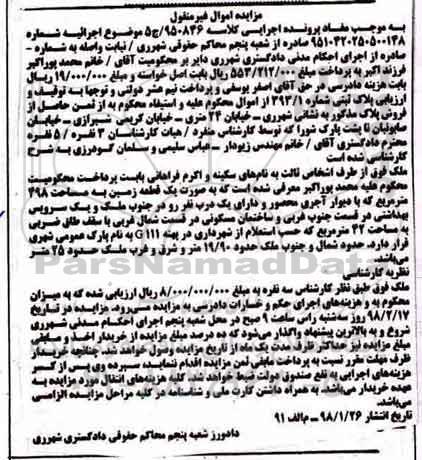 مزایده اموال غیرمنقول
به موجب مفاد پرونده اجرایی کلاسه ۹۵۰۸۴۶/ج۵ موضوع اجرائیه شماره
۹۵۱۰۴۲۰۲۵۰۵۰۰۱۴۸ صادره از شعبه پنجم محاکم حقوقی شهرری / نیابت واصله به شماره -
صادره از اجرای احکام مدنی دادگستری شهرری دایر بر محکومیت آقای / خانم محمد پوراکبر
فرزند اکبر به پرداخت مبلغ ۵۵۳/۲۱۲/۰۰۰ ریال بابت اصل خواسته و مبلغ ۱۹/۰۰۰/۰۰۰ ریال
بابت هزینه دادرسی در حق آقای اصغر یوسفی و پرداخت نیم عشر دولتی و توجها به توقیف و
ارزیابی پلاک ثبتی شماره ۳۹۳/۱ از اموال محکوم علیه و استیفاء محکوم به از ثمن حاصل از
فروش پلاک مذکور به نشانی شهرری - خیابان ۲۴ متری - خیابان کریمی شیرازی - خیابان
صابونیان تا پشت پارک شورا که توسط کارشناس منفرد / هیات کارشناسان ۳ نفره / ۵ نفره
محترم دادگستری آقای / خانم مهندس زیودار - عباس سلیمی و سلمان گودرزی به شرح
کارشناسی شده است
ملک فوق از طرف اشخاص ثالث به نام‌های سکینه و اکرم فراهانی بابت پرداخت محکومیت
محکوم علیه محمد پوراکبر معرفی شده است که به صورت یک قطعه زمین به مساحت ۴۹۸
مترمربع که با دیوار آجری محصور و دارای یک درب نفر رو در جنوب ملک و یک سرویس
بهداشتی در قسمت جنوب غربی و ساختمان مسکونی در قسمت شمال غربی با سقف طاق ضربی
به مساحت ۴۲ مترمربع که حسب استعلام از شهرداری در پهنه G111 به نام پارک عمومی شهری
قرار دارد. حدود شمال و جنوب ملک حدود ۱۹/۹۰ متر و شرق و غرب ملک حدود ۲۵ متر
می‌باشد.
نظریه کارشناسی
ملک فوق طبق نظر کارشناس سه نفره به مبلغ ۸/۰۰۰/۰۰۰/۰۰۰ ریال ارزیابی شده که به میزان
محکوم به و هزینه‌های اجرای حکم و خسارات دادرسی به مزایده می‌رود. مزایده در تاریخ
۹۸/۲/۱۷ روز سه‌شنبه راس ساعت ۹ صبح در محل شعبه پنجم اجرای احکام مدنی شهرری
شروع و به بالاترین پیشنهاد واگذار می‌شود که ده درصد مبلغ مزایده از خریدار اخذ و مابقی
مبلغ مزایده نیز حداکثر ظرف مدت یک ماه از تاریخ مزایده وصول خواهد شد. چنانچه خریدار
ظرف مهلت مقرر نسبت به پرداخت مابقی ثمن مزایده اقدام ننماید سپرده وی پس از کسر
هزینه‌های اجرایی به نفع صندوق دولت ضبط خواهد شد. کلیه هزینه‌های انتقال مورد مزایده به
عهده خریدار می‌باشد. به همراه داشتن کارت ملی و شناسنامه در کلیه مراحل مزایده الزامی
می‌باشد.
تاریخ انتشار ۹۸/۱/۲۶ - م‌الف ۹۱
دادورز شعبه پنجم محاکم حقوقی دادگستری شهرری
ParsNamadData